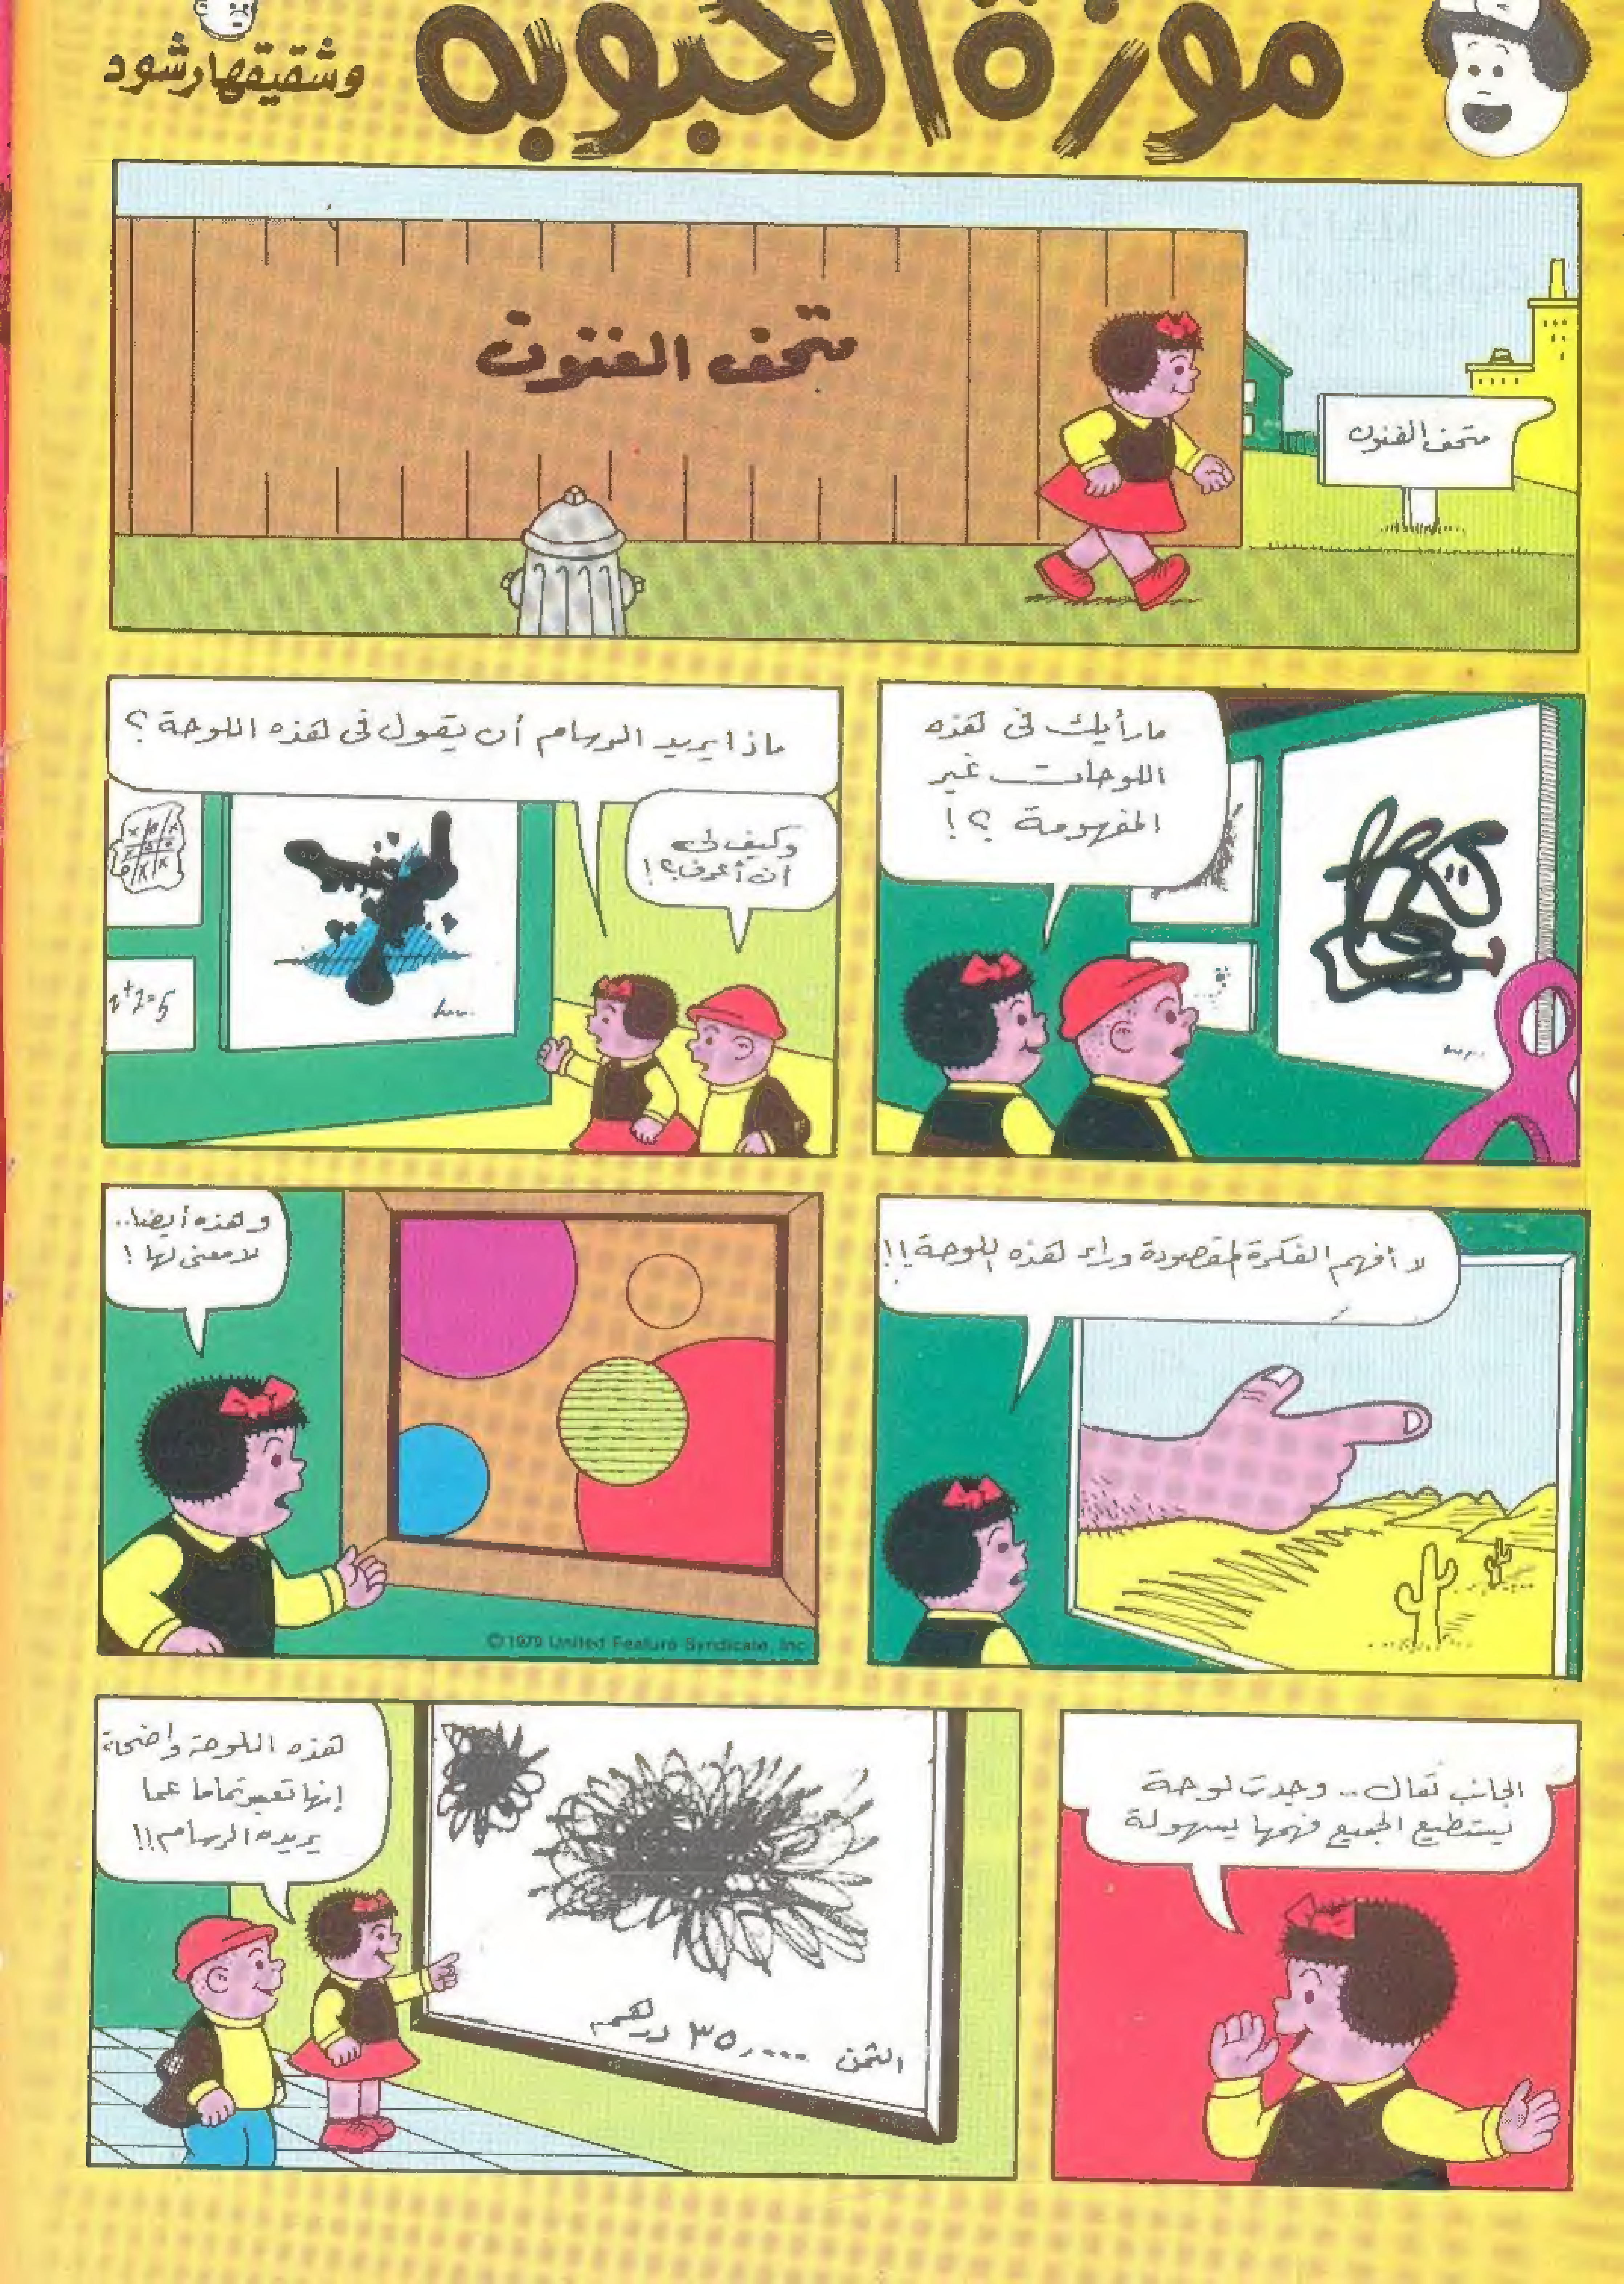 موزة الحبوبه
وشقيقها رشود
متحف الفنون
متحف الفنون
ما رأيك في هذه
اللوحات غير
المفهومة ؟!
ماذا يريد الرسام أن يقول في هذه اللوحة ؟
وكيف لي
أن أعرف؟!
2+2=5
لا أفهم الفكرة المقصودة وراء هذه اللوحة !!
وهذه أيضا..
لا معنى لها !
©1979 United Feature Syndicate, Inc.
تعال .. وجدت لوحة
يستطيع الجميع فهمها بسهولة
هذه اللوحة واضحة
إنها تعبر تماما عما
يريده الرسام !!
الثمن ٣٥,٠٠٠ درهم